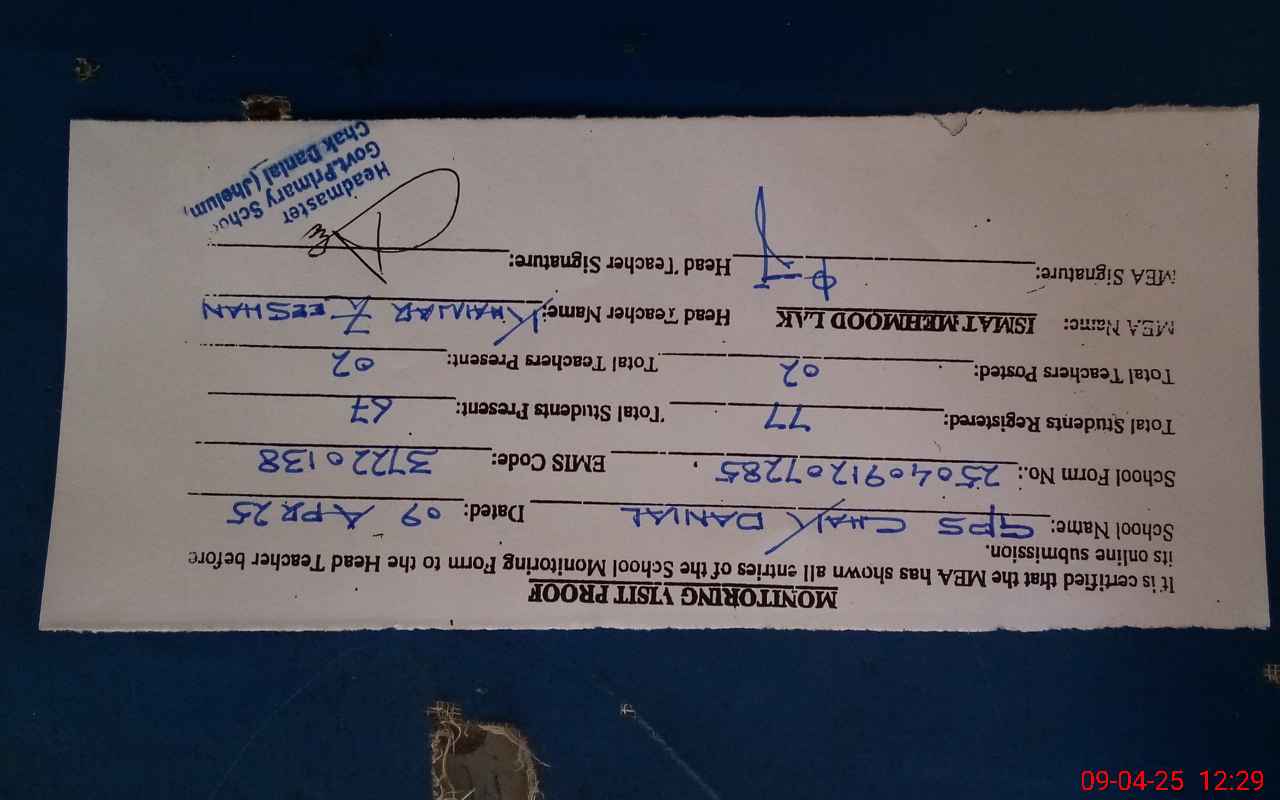 MONITORING VISIT PROOF
It is certified that the MEA has shown all entries of the School Monitoring Form to the Head Teacher before
its online submission.
School Name: GPS CHAK DANIAL Dated: 09 APR 25
School Form No.: 250409120 7285 EMIS Code: 37220138
Total Students Registered: 77 Total Students Present: 67
Total Teachers Posted: 02 Total Teachers Present: 02
MEA Name: ISMAT MEHMOOD LAK Head Teacher Name: KHAWAR ZEESHAN
MEA Signature: Head Teacher Signature:
Headmaster
Govt.Primary Schoo
Chak Danial (Jhelum)
09-04-25 12:29